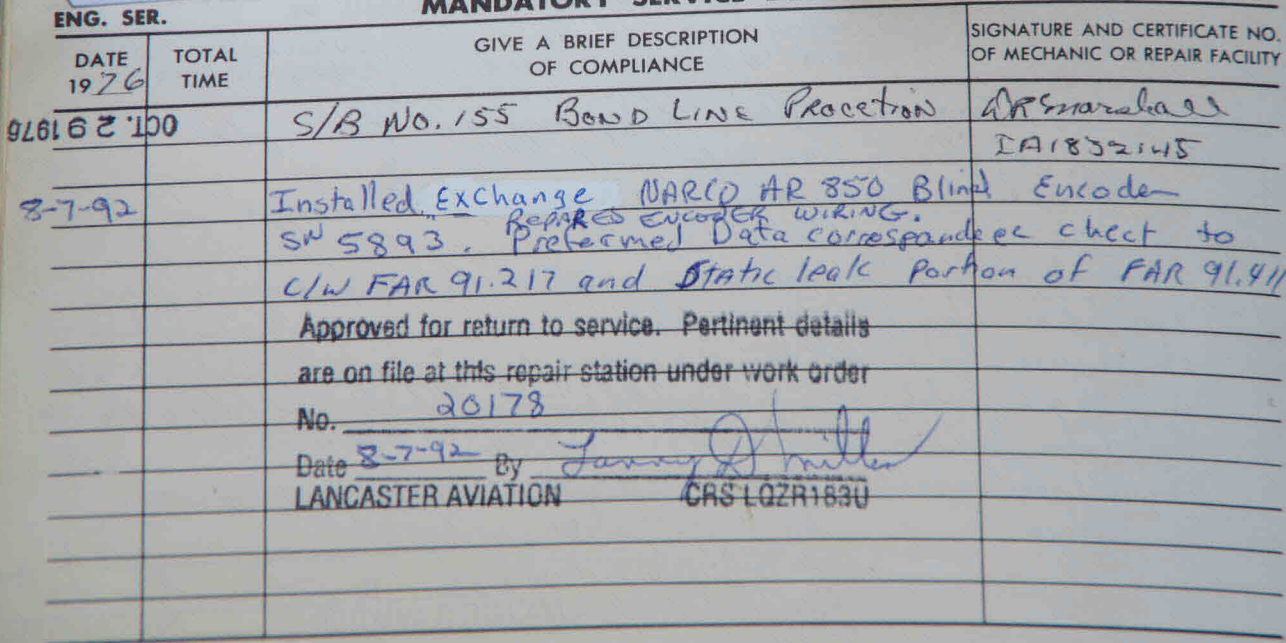 MANDATORY SERVICE
ENG. SER.
DATE
1976
TOTAL
TIME
GIVE A BRIEF DESCRIPTION
OF COMPLIANCE
SIGNATURE AND CERTIFICATE NO.
OF MECHANIC OR REPAIR FACILITY
OCT. 29 1976
S/B No. 155 BOND LINE PROCETION
IA1832145
8-7-92
Installed Exchange NARCO AR 850 Blind Encoder
REPARES ENCODER WIRING.
SN 5893. Preformed Data correspandeec chect to
C/W FAR 91.217 and Static leak Portion of FAR 91.411
Approved for return to service. Pertinent details
are on file at this repair station under work order
No. 20178
Date 8-7-92 By
LANCASTER AVIATION CRS LQZR183U